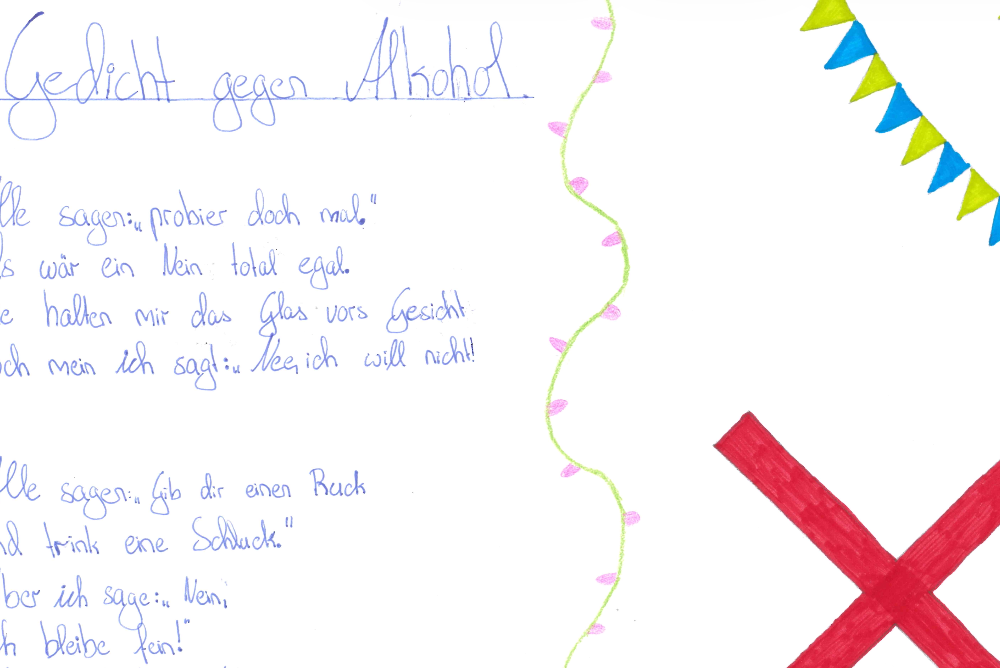 Gedicht gegen Alkohol.
lle sagen: „probier doch mal."
s wär ein Nein total egal.
e halten mir das Glas vors Gesicht
och mein ich sagt: „Nee, ich will nicht!
lle sagen: „Gib dir einen Ruck
nd trink eine Schluck."
ber ich sage: „Nein,
h bleibe fein!"